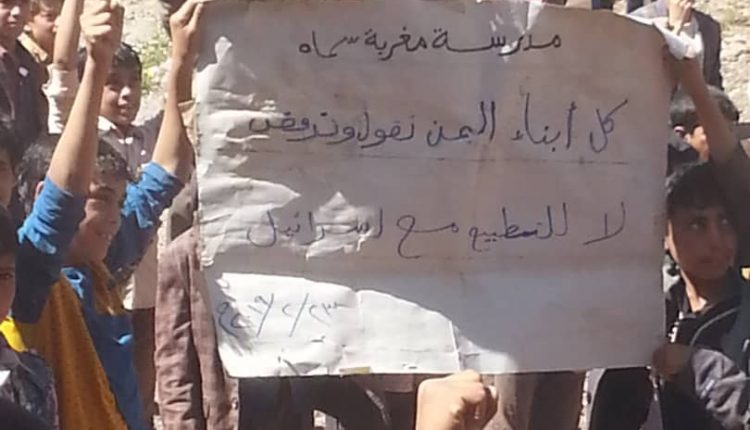 مدرسة مغربة سماه
كل أبناء اليمن نقول ونرفض
لا للتطبيع مع اسرائيل